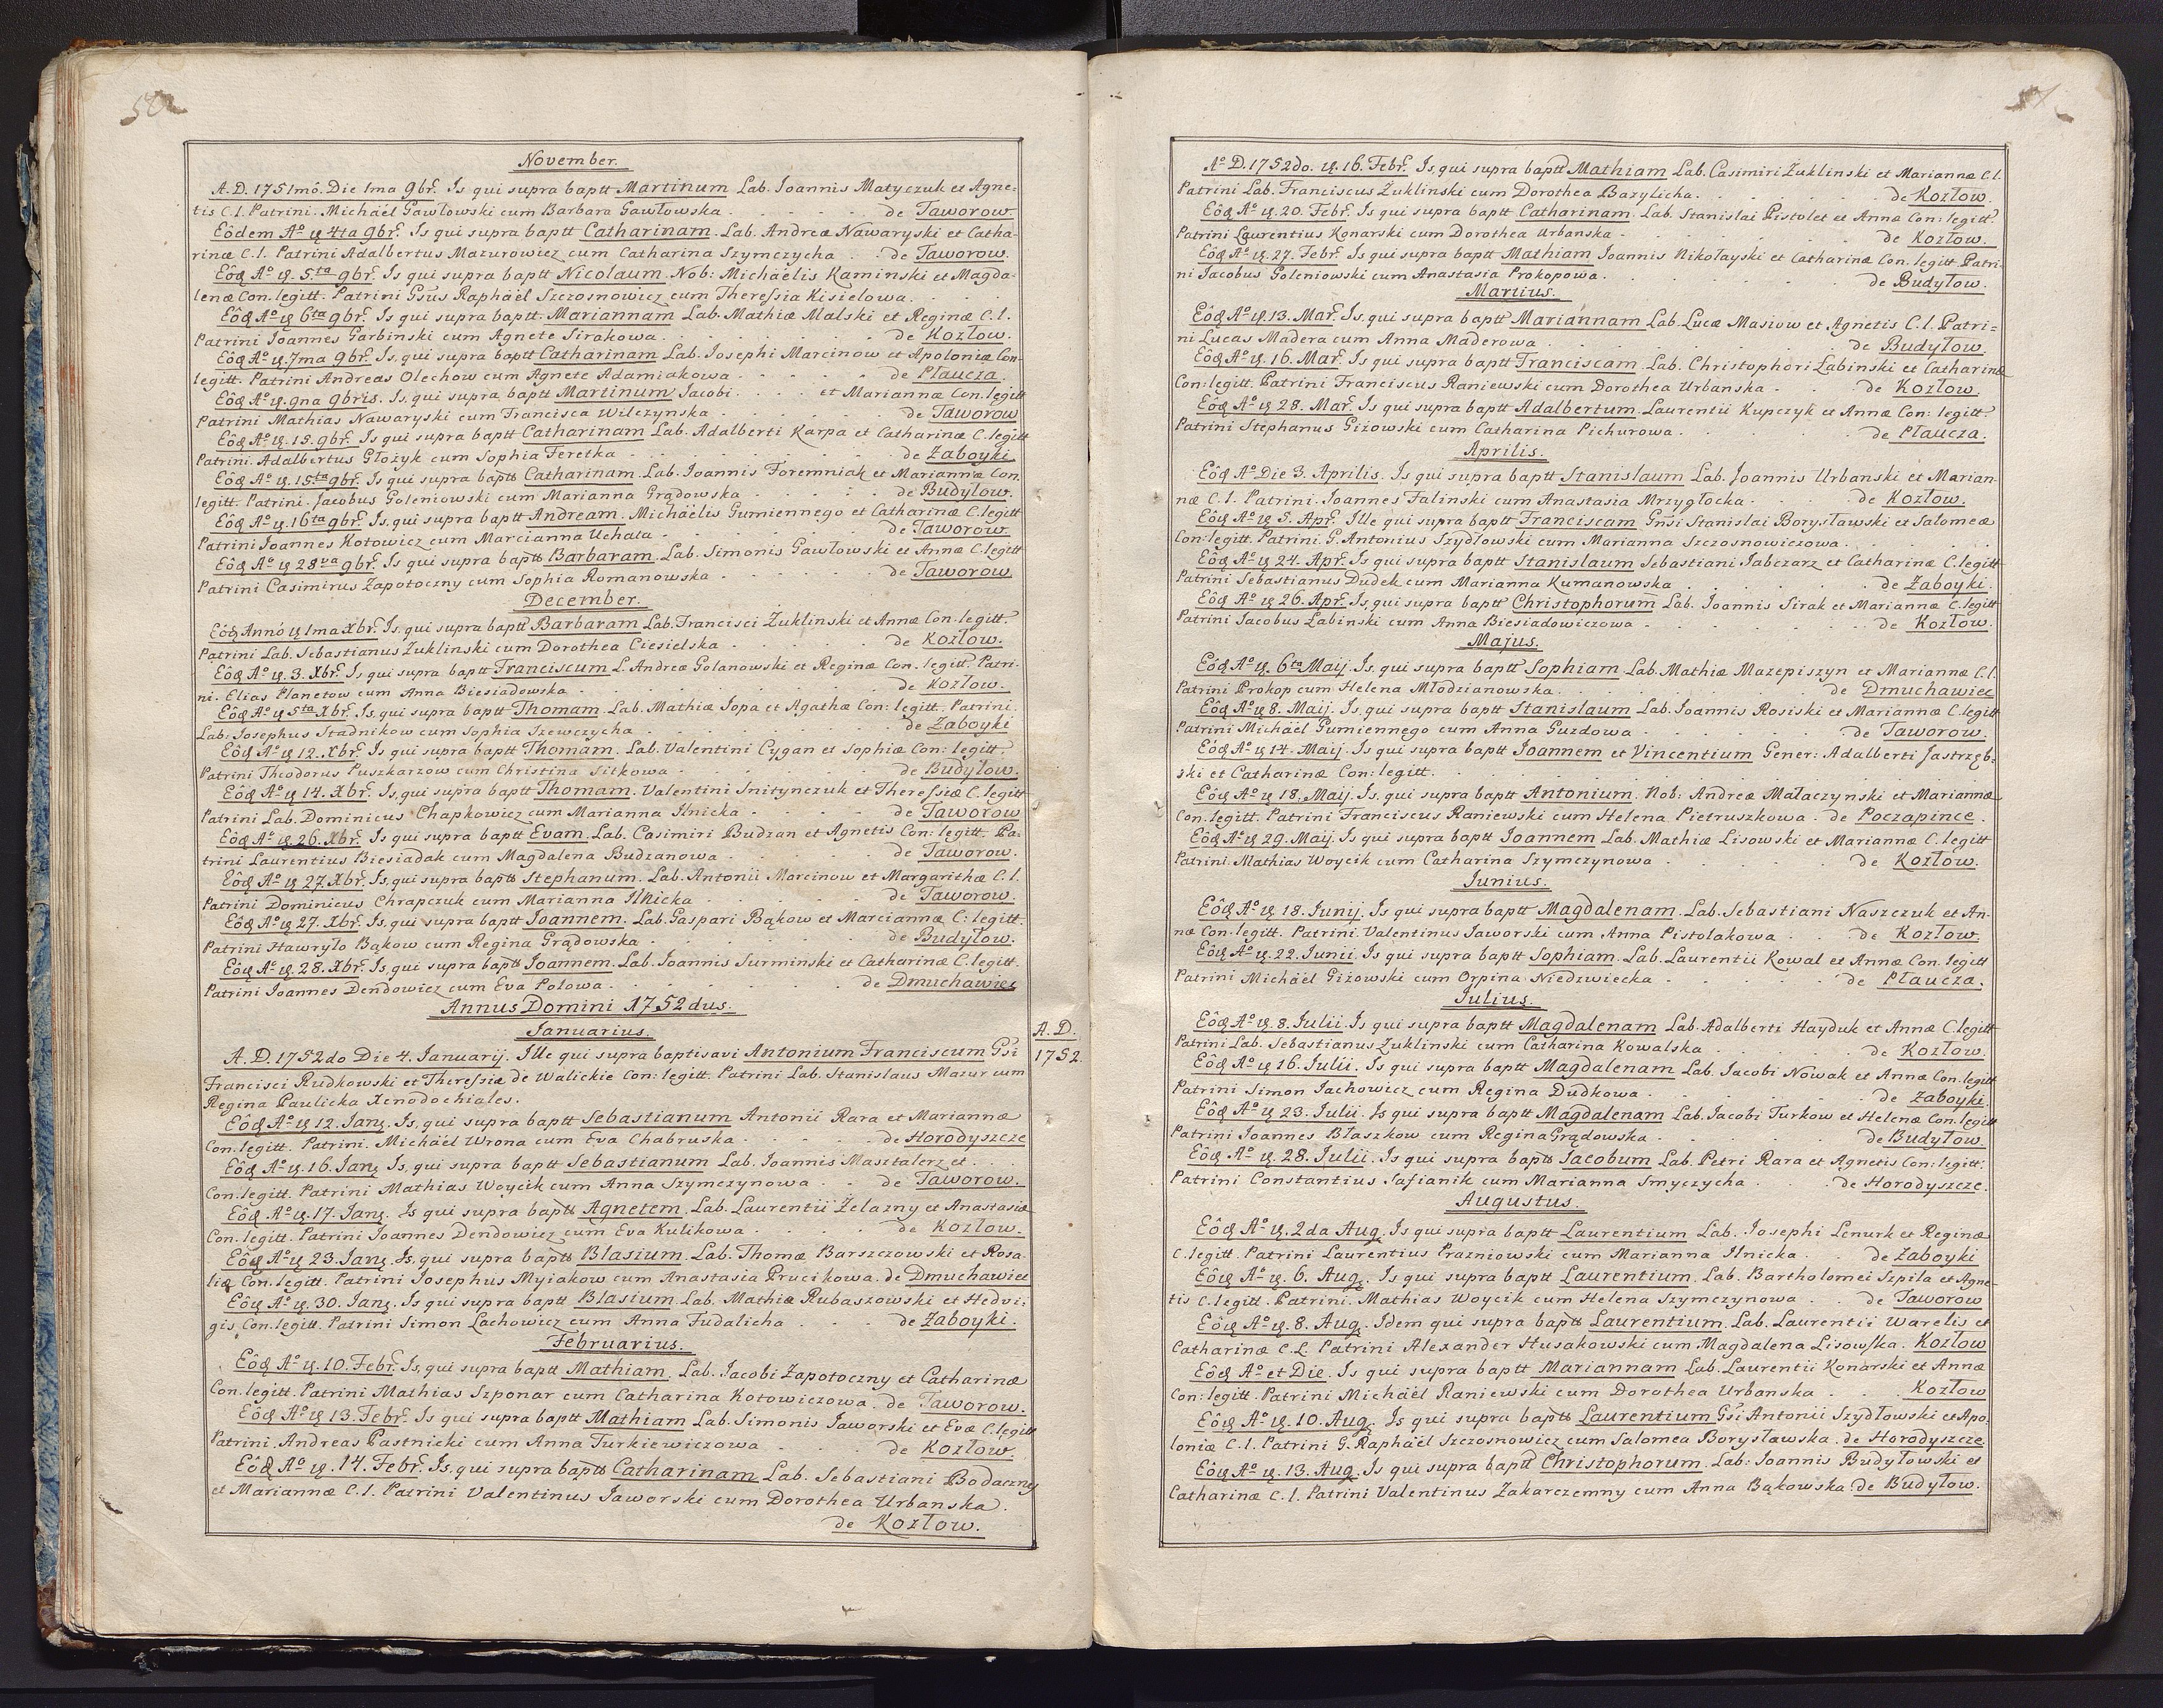 November.
A. D. 1751mô. Die 1ma 9br̃. Is qui supra baptt Martinum Lab. Joannis Matyczuk et Agne=
tis C. l. Patrini. Michäel Gawłowski cum Barbara Gawłowska . de Taworow.
Eôdem Aº & 4ta 9br̃. Is qui supra baptt Catharinam. Lab. Andreæ Nawaryski et Catha-
rinæ C. l. Patrini Adalbertus Mazurowicz cum Catharina Szymczycha . de Taworow.
Eôd Aº & 5ta 9br̃. Is qui supra baptt Nicolaum. Nob: Michäelis Kaminski et Magda-
lenæ Con. legitt. Patrini Gsus Raphäel Szczosnowicz cum Theressia Kisielowa.
Eôd Aº & 6ta 9br̃. Is qui supra baptt. Mariannam Lab. Mathiæ Malski et Reginæ C. l.
Patrini Joannes Garbinski cum Agnete Sirakowa. de Kozłow.
Eôd Aº & 7ma 9br̃. Is, qui supra baptt Catharinam Lab. Josephi Marcinow et Apoloniæ Con-
legitt. Patrini Andreas Olechow cum Agnete Adamiakowa . de Płaucza.
Eôd Aº & 9na 9bris. Is, qui supra baptt Martinum Jacobi . . . . et Mariannæ Con. legitt
Patrini Mathias Nawaryski cum Francisca Wilczynska . de Taworow
Eôd Aº & 15. 9br̃. Is qui supra baptt Catharinam Lab. Adalberti Karpa et Catharinæ C. legitt
Patrini. Adalbertus Głożyk cum Sophia Feretka . de Zaboyki
Eôd Aº & 15ta 9br̃. Is qui supra baptt Catharinam. Lab. Joannis Foremniak et Mariannæ Con.
legitt. Patrini. Jacobus Goleniowski cum Marianna Grądowska . de Budyłow.
Eôd Aº & 16ta 9br̃. Is, qui supra baptt Andream. Michäelis Gumiennego et Catharinæ C. legitt
Patrini Joannes Kotowicz cum Marcianna Uchala . de Taworow.
Eôd Aº & 28va 9br̃. Is qui supra baptt Barbaram. Lab. Simonis Gawłowski et Annæ C. legitt
Patrini Casimirus Zapotoczny cum Sophia Romanowska . de Taworow.
December.
Eôd Annô & 1ma Xbr̃. Is, qui supra baptt Barbaram Lab. Francisci Żuklinski et Annæ Con. legitt.
Patrini Lab. Sebastianus Żuklinski cum Dorothea Ciesielska . de Kozłow.
Eôd Aº & 3. Xbr̃. Is qui supra baptt Franciscum L. Andreæ Golanowski et Reginæ Con. legitt. Patri-
ni. Elias Planetow cum Anna Biesiadowska . de Kozłow.
Eôd Aº & 5ta Xbr̃. Is, qui supra baptt Thomam. Lab. Mathiæ Sopa et Agathæ Con: legitt. Patrini.
Lab: Josephus Stadnikow cum Sophia Szewczycha . de Zaboyki
Eôd Aº & 12. Xbr̃. Is qui supra baptt Thomam. Lab. Valentini Cygan et Sophiæ Con: legitt.
Patrini Theodorus Puszkarzow cum Christina Sitkowa . de Budyłow.
Eôd Aº & 14. Xbr̃. Is, qui supra baptt Thomam. Valentini Snitynczuk et Theressiæ C. legitt
Patrini Lab. Dominicus Chapkowicz cum Marianna Ilnicka . de Taworow
Eôd Aº & 26. Xbr̃. Is qui supra baptt Evam. Lab. Casimiri Budzan et Agnetis Con: legitt. Pa-
trini Laurentius Biesiadak cum Magdalena Budzanowa . de Taworow.
Eôd Aº & 27. Xbr̃. Is, qui supra baptt Stephanum. Lab. Antonii Marcinow et Margarithæ C. l.
Patrini Dominicus Chrapczuk cum Marianna Ilnicka . de Taworow.
Eôd Aº & 27. Xbr̃. Is, qui supra baptt Joannem. Lab. Gaspari Bąkow et Marciannæ C: legitt.
Patrini Hawryło Bąkow cum Regina Grądowska . de Budyłow.
Eôd Aº & 28. Xbr̃. Is, qui supra baptt Joannem. Lab. Joannis Surminski et Catharinæ C. legitt.
Patrini Joannes Dendowicz cum Eva Polowa . de Dmuchawiec
Annus Domini 1752dus.
Januarius.
A. D. 1752.
A. D. 1752do Die 4. Januarij. Ille qui supra baptisavi Antonium Franciscum Gsi
Francisci Rudkowski et Theressiæ de Walickie Con: legitt. Patrini Lab. Stanislaus Mazur cum
Regina Paulicka Xenodochiales.
Eôd Aº & 12. Jan. Is, qui supra baptt Sebastianum Antonii Rara et Mariannæ
Con. legitt. Patrini. Michäel Wrona cum Eva Chabruska . de Horodyszcze
Eôd Aº & 16. Jan. Is, qui supra baptt Sebastianum Lab. Joannis Masztalerz et . . .
Con: legitt. Patrini Mathias Woycik cum Anna Szymczynowa . de Taworow.
Eôd Aº & 17. Jan. Is qui supra baptt Agnetem. Lab. Laurentii Żelazny et Anastasiæ
Con. legitt. Patrini Joannes Dendowicz cum Eva Kulikowa . de Kozłow.
Eôd Aº & 23. Jan. Is, qui supra baptt Blasium. Lab. Thomæ Barszczowski et Rosa-
liæ Con. legitt. Patrini Josephus Myiakow cum Anastasia Prucikowa. de Dmuchawiec
Eôd Aº & 30. Jan. Is qui supra baptt Blasium. Lab. Mathiæ Rubaszowski et Hedvi:
gis Con. legitt. Patrini Simon Lachowicz cum Anna Fudalicha . de Zaboyki.
Februarius.
Eôd Aº & 10. Febr̃. Is, qui supra baptt Mathiam. Lab. Jacobi Zapotoczny et Catharinæ
Con. legitt. Patrini Mathias Szponar cum Catharina Kotowiczowa. de Taworow.
Eôd Aº & 13. Febr̃. Is qui supra baptt Mathiam Lab. Simonis Jaworski et Evæ C. legitt
Patrini. Andreas Pastnicki cum Anna Turkiewiczowa . de Kozłow.
Eôd Aº & 14. Febr̃. Is, qui supra baptt Catharinam Lab. Sebastiani Bodaczny
et Mariannæ C. l. Patrini Valentinus Jaworski cum Dorothea Urbanska.
de Kozłow.
Aº D. 1752do. & 16. Febr̃. Is, qui supra baptt Mathiam Lab. Casimiri Żuklinski et Mariannæ C. l.
Patrini Lab. Franciscus Żuklinski cum Dorothea Bazylicha . de Kozłow.
Eôd Aº & 20. Febr̃. Is qui supra baptt Catharinam. Lab. Stanislai Pistolet et Annæ Con: legitt.
Patrini Laurentius Konarski cum Dorothea Urbanska . de Kozłow.
Eôd Aº & 27. Febr̃. Is qui supra baptt Mathiam Joannis Nikołayski et Catharinæ Con. legitt. Patri-
ni Jacobus Goleniowski cum Anastasia Prokopowa . de Budyłow.
Martius.
Eôd Aº & 13. Mar̃. Is, qui supra baptt Mariannam Lab. Lucæ Masiow et Agnetis C. l. Patri=
ni Lucas Madera cum Anna Maderowa . de Budyłow.
Eôd Aº & 16. Mar̃. Is qui supra baptt Franciscam. Lab. Christophori Labinski et Catharinæ
Con: legitt. Patrini Franciscus Raniewski cum Dorothea Urbanska . de Kozłow.
Eôd Aº & 28. Mar̃. Is qui supra baptt Adalbertum. Laurentii Kupczyk et Annæ Con: legitt.
Patrini Stephanus Giżowski cum Catharina Pichurowa . de Płaucza.
Aprilis.
Eôd Aº Die 3. Aprilis. Is qui supra baptt Stanislaum Lab. Joannis Urbanski et Marian-
næ C. l. Patrini. Joannes Falinski cum Anastasia Mrzygłocka . de Kozłow.
Eôd Aº & 5. Apr̃. Ille qui supra baptt Franciscam Gnsi Stanislai Borysławski et Salomeæ
Con: legitt. Patrini. G. Antonius Szydłowski cum Marianna Szczosnowiczowa.
Eôd Aº & 24. Apr̃. Is qui supra baptt Stanislaum Sebastiani Jabczarz et Catharinæ C. legitt
Patrini Sebastianus Dudek cum Marianna Kumanowska . de Zaboyki.
Eôd Aº & 26. Apr̃. Is, qui supra baptt Christophorum Lab. Joannis Sirak et Mariannæ C. legitt
Patrini Jacobus Labinski cum Anna Biesiadowiczowa . de Kozłow.
Majus.
Eôd Aº & 6ta Maij. Is, qui supra baptt Sophiam Lab. Mathiæ Mazepiszyn et Mariannæ C. l.
Patrini Prokop cum Helena Młodzianowska . de Dmuchawiec
Eôd Aº & 8. Maij. Is, qui supra baptt Stanislaum Lab. Joannis Rosiski et Mariannæ C. legitt
Patrini Michäel Gumiennego cum Anna Guzdowa . de Taworow.
Eôd Aº & 14. Maij. Is qui supra baptt Joannem et Vincentium Gener: Adalberti Jastrzęb-
ski et Catharinæ Con: legitt.
Eôd Aº & 18. Maij. Is, qui supra baptt Antonium. Nob: Andreæ Małaczynski et Mariannæ
Con. legitt. Patrini Franciscus Raniewski cum Helena Pietruszkowa. de Poczapince.
Eôd Aº & 29. Maij. Is qui supra baptt Joannem Lab. Mathiæ Lisowski et Mariannæ C. legitt
Patrini. Mathias Woycik cum Catharina Szymczynowa . de Kozłow.
Junius.
Eôd Aº & 18. Junij. Is qui supra baptt Magdalenam. Lab. Sebastiani Naszczuk et An-
næ Con. legitt. Patrini. Valentinus Jaworski cum Anna Pistolakowa . de Kozłow.
Eôd Aº & 22. Junii. Is qui supra baptt Sophiam. Lab. Laurentii Kowal et Annæ Con. legitt
Patrini Michäel Giżowski cum Orpina Niedzwiecka . de Płaucza.
Julius.
Eôd Aº & 8. Julii. Is qui supra baptt Magdalenam Lab. Adalberti Hayduk et Annæ C. legitt
Patrini Lab. Sebastianus Żuklinski cum Catharina Kowalska . de Kozłow.
Eôd Aº & 16. Julii. Is qui supra baptt Magdalenam Lab. Jacobi Nowak et Annæ Con. legitt
Patrini Simon Jachowicz cum Regina Dudkowa . de Zaboyki.
Eôd Aº & 23. Julii. Is qui supra baptt Magdalenam Lab. Jacobi Turkow et Helenæ Con. legitt
Patrini Joannes Błaszkow cum Regina Grądowska . de Budyłow.
Eôd Aº & 28. Julii. Is qui supra baptt Jacobum Lab. Petri Rara et Agnetis Con: legitt.
Patrini Constantius Safianik cum Marianna Smyczycha . de Horodyszcze.
Augustus.
Eôd Aº & 2da Aug. Is qui supra baptt Laurentium Lab. Josephi Lenurk et Reginæ
C. legitt. Patrini Laurentius Prazniowski cum Marianna Ilnicka . de Zaboyki
Eôd Aº & 6. Aug. Is qui supra baptt Laurentium. Lab. Bartholomei Szpila et Agne-
tis C. legitt. Patrini. Mathias Woycik cum Helena Szymczynowa . de Taworow
Eôd Aº & 8. Aug. Idem qui supra baptt Laurentium. Lab. Laurentii Warelis et
Catharinæ C. L. Patrini Alexander Husakowski cum Magdalena Lisowska. Kozłow
Eôd Aº et Die. Is qui supra baptt Mariannam Lab. Laurentii Konarski et Annæ
Con: legitt. Patrini Michäel Raniewski cum Dorothea Urbanska . Kozłow
Eôd Aº & 10. Aug. Is qui supra baptt Laurentium Gsi Antonii Szydłowski et Apo-
loniæ C. l. Patrini G. Raphäel Szczosnowicz cum Salomea Borysławska. de Horodyszcze
Eôd Aº & 13. Aug. Is qui supra baptt Christophorum. Lab: Joannis Budyłowski et
Catharinæ C. l. Patrini Valentinus Zakarczemny cum Anna Bąkowska de Budyłow.